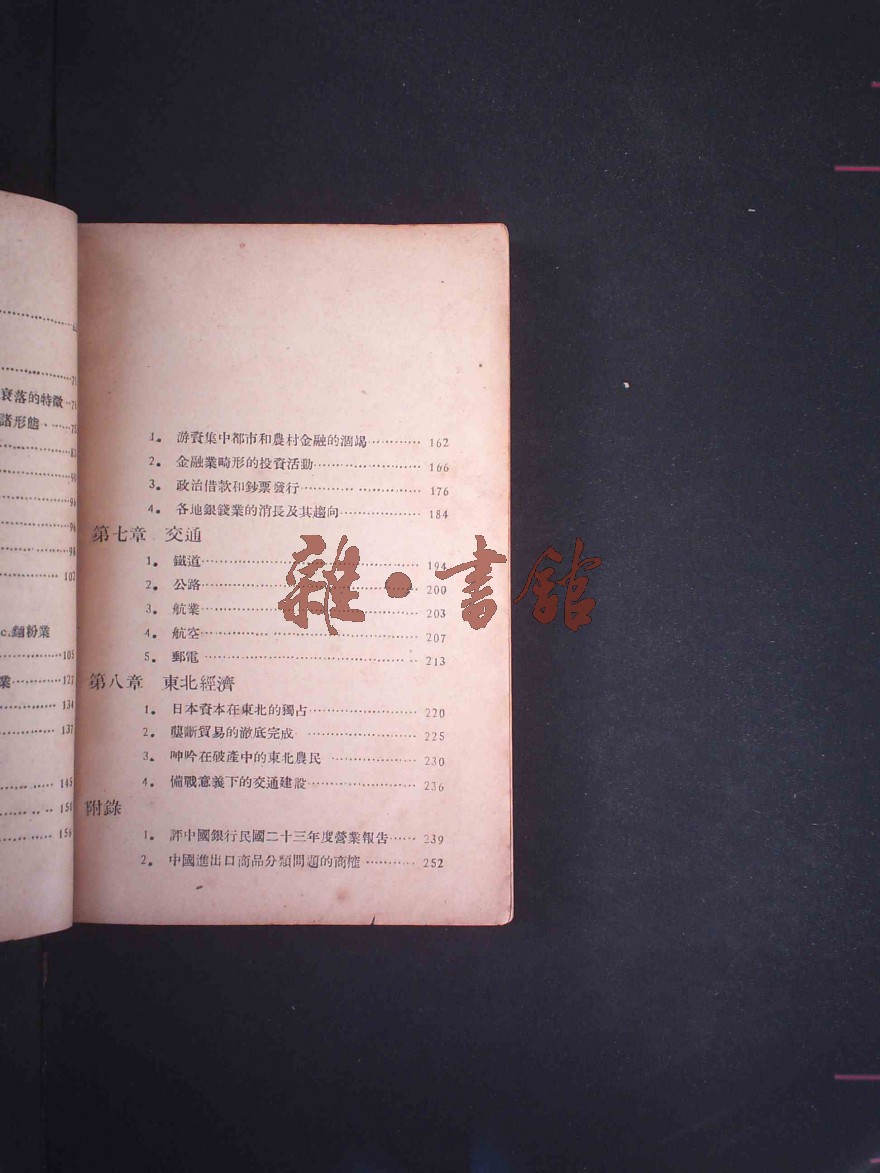 衰落的特徵
諸形態
c.麵粉業
業
127
134
137
145
156
1. 游資集中都市和農村金融的涸竭………… 162
2. 金融業畸形的投資活動………………… 166
3. 政治借款和鈔票發行…………………… 176
4. 各地銀錢業的消長及其趨向…………… 184
第七章 交通
1. 鐵道……………………………………… 194
2. 公路……………………………………… 200
3. 航業……………………………………… 203
4. 航空……………………………………… 207
5. 郵電……………………………………… 213
第八章 東北經濟
1. 日本資本在東北的獨占………………… 220
2. 壟斷貿易的澈底完成 ………………… 225
3. 呻吟在破產中的東北農民 …………… 230
4. 備戰意義下的交通建設………………… 236
附錄
1. 評中國銀行民國二十三年度營業報告…… 239
2. 中國進出口商品分類問題的商榷………… 252
雜·書館